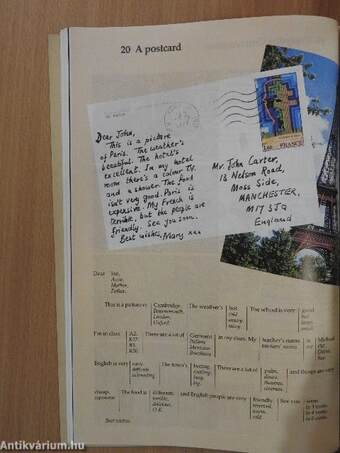 20 A postcard
1.40 FRANCE
Dear John,
This is a picture
of Paris. The weather's
beautiful. The hotel's
excellent. In my hotel
room there's a colour TV
and a shower. The food
isn't very good. Paris is
expensive. My French is
terrible, but the people are
friendly. See you soon.
Best wishes, Mary xxx
Mr. John Carter,
18 Nelson Road,
Moss Side,
MANCHESTER,
M17 3JQ
England
Dear Joe,
Anne,
Mother,
Father,
This is a picture of Cambridge. The weather's hot You school is very good
Bournemouth. cold
London. sunny.
Oxford.
I'm in class A2. There are a lot of German in my class. My teacher's name is Michael
Italians teachers' names are
Mexicans
Brazilians
English is very easy. The town's There are a lot of and things are very
difficult.
interesting.
cheap. The food is different and English people are very friendly See you soon
expensive. terrible reserved in
O.K.
Best wishes
Antikvárium.hu